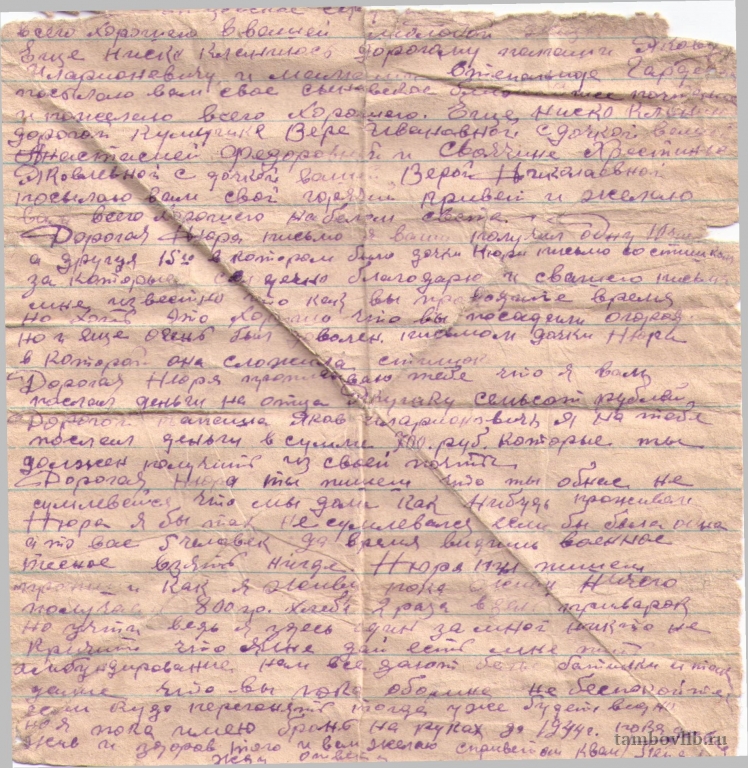 всего хорошего в вашей
Еще ниско кланиюсь дорогому папаши Якову
Иларионевичу и мамаши Степаниде
посылаю вам свое сыновское
и пожелаю всего хорошего. Еще ниско
дорогой кумушке Вере Ивановной с дочкой вашей
Анастасией Федоровной и сватчине Хрестинье
Яковлевной с дочкой вашей Верой Николаевной
посылаю вам свой горячий привет и желаю
вам всего хорошего на белом свете.
Дорогая Нюря письмо я ваши получил одну 10
а другую 15 в котором было дочки Нюри письмо со стишком
за которые сердечно благодарю и с вашего письма
мне известно что как вы проводите время
но хоть это хорошо что вы посадили огород
но и еще очень был доволен письмом дочки Нюри
в которой она сложила стишок
Дорогая Нюря прописоваю тебе что я вам
послал деньги на отца семьсот рублей
Дорогой папаша Яков Иларионович я на тебя
послал деньги в сумми 700 руб. которые ты
должен получить из своей почты
Дорогая Нюря ты пишеш что ты об нас не
сумлевайся что мы дома как нибудь проживем
Нюря я бы так не сумлевался если бы была одна
а то вас 5 человек да время видишь военное
тесное взять нигде Нюря ты пишеш
как я живу пока живу ничего
получаю 800 гр. хлеба 2 раза в день приварок
но учти ведь я здесь один за мной никто не
кричит что дай есть мне
обмундирование нам все дают ботинки и так
далее что вы пока обо мне не беспокойтесь
если куда перегонят тогда уже будет видно
но я пока имею бронь на руках до 1944 г. пока
жив и здоров того и вам желаю с приветом к вам
жду ответа
tambovlib.ru